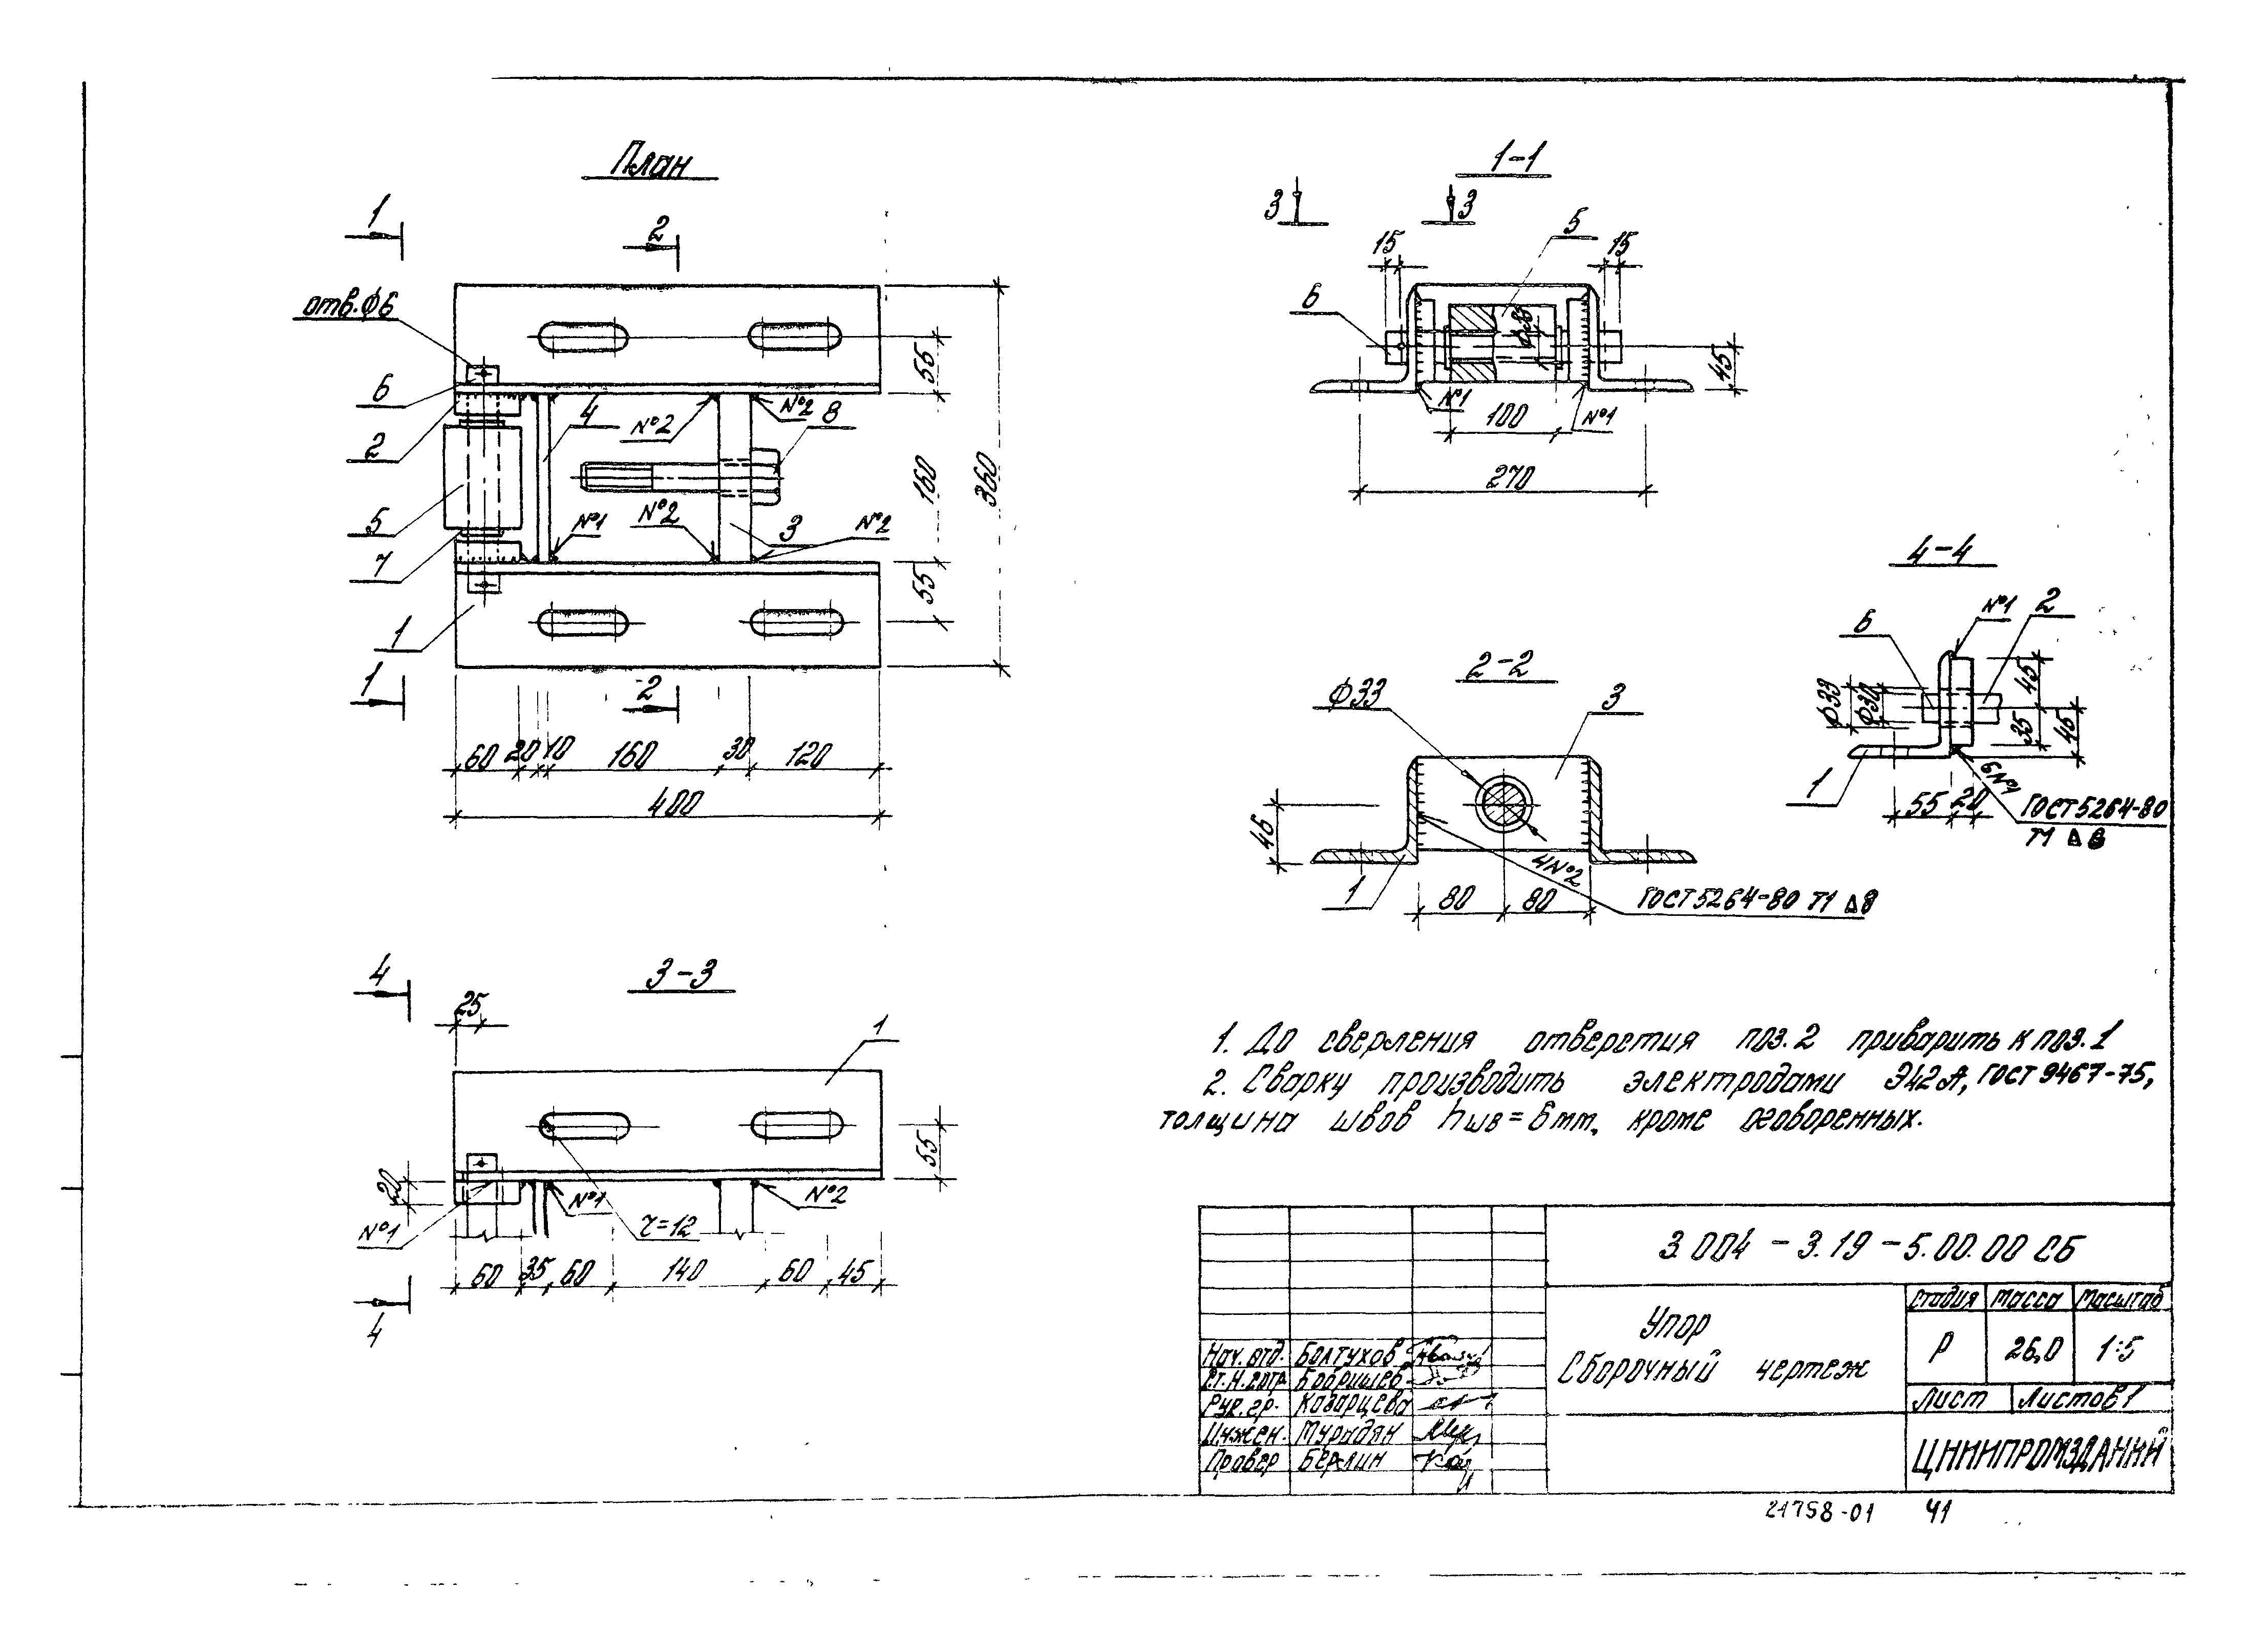 План
1
2
отв.Ф6
6
2
5
7
1
1
4
№2
№2
8
№1
№2
3
№2
55
160
360
55
2
60 20 10 160 30 120
400
1-1
3
3
5
15
15
6
Ф33
45
№1
100
№1
270
4-4
6
№1
2
Ф33
Ф30
45
35
45
1
55 20
6№1
ГОСТ 5264-80
Т1 Δ 6
2-2
Ф33
3
45
1
80 80
4№2
ГОСТ 5264-80 Т1 Δ8
4
3-3
25
1
55
20
№1
№1
№2
r=12
60 35 60 140 60 45
4
1. До сверления отверстия поз.2 приварить к поз.1
2. Сварку производить электродами Э42А, ГОСТ 9467-75,
толщина швов hшв=6мм, кроме оговоренных.
3.004-3.19-5.00.00 СБ
Упор
Сборочный чертеж
Стадия Масса Масштаб
Р 26,0 1:5
Лист Листов 1
ЦНИИПРОМЗДАНИЙ
Нач. отд. Болтухов
Бобришев
Рук. гр. Казарцева
Инжен. Мурадян
Провер Берлин
21758-01 41